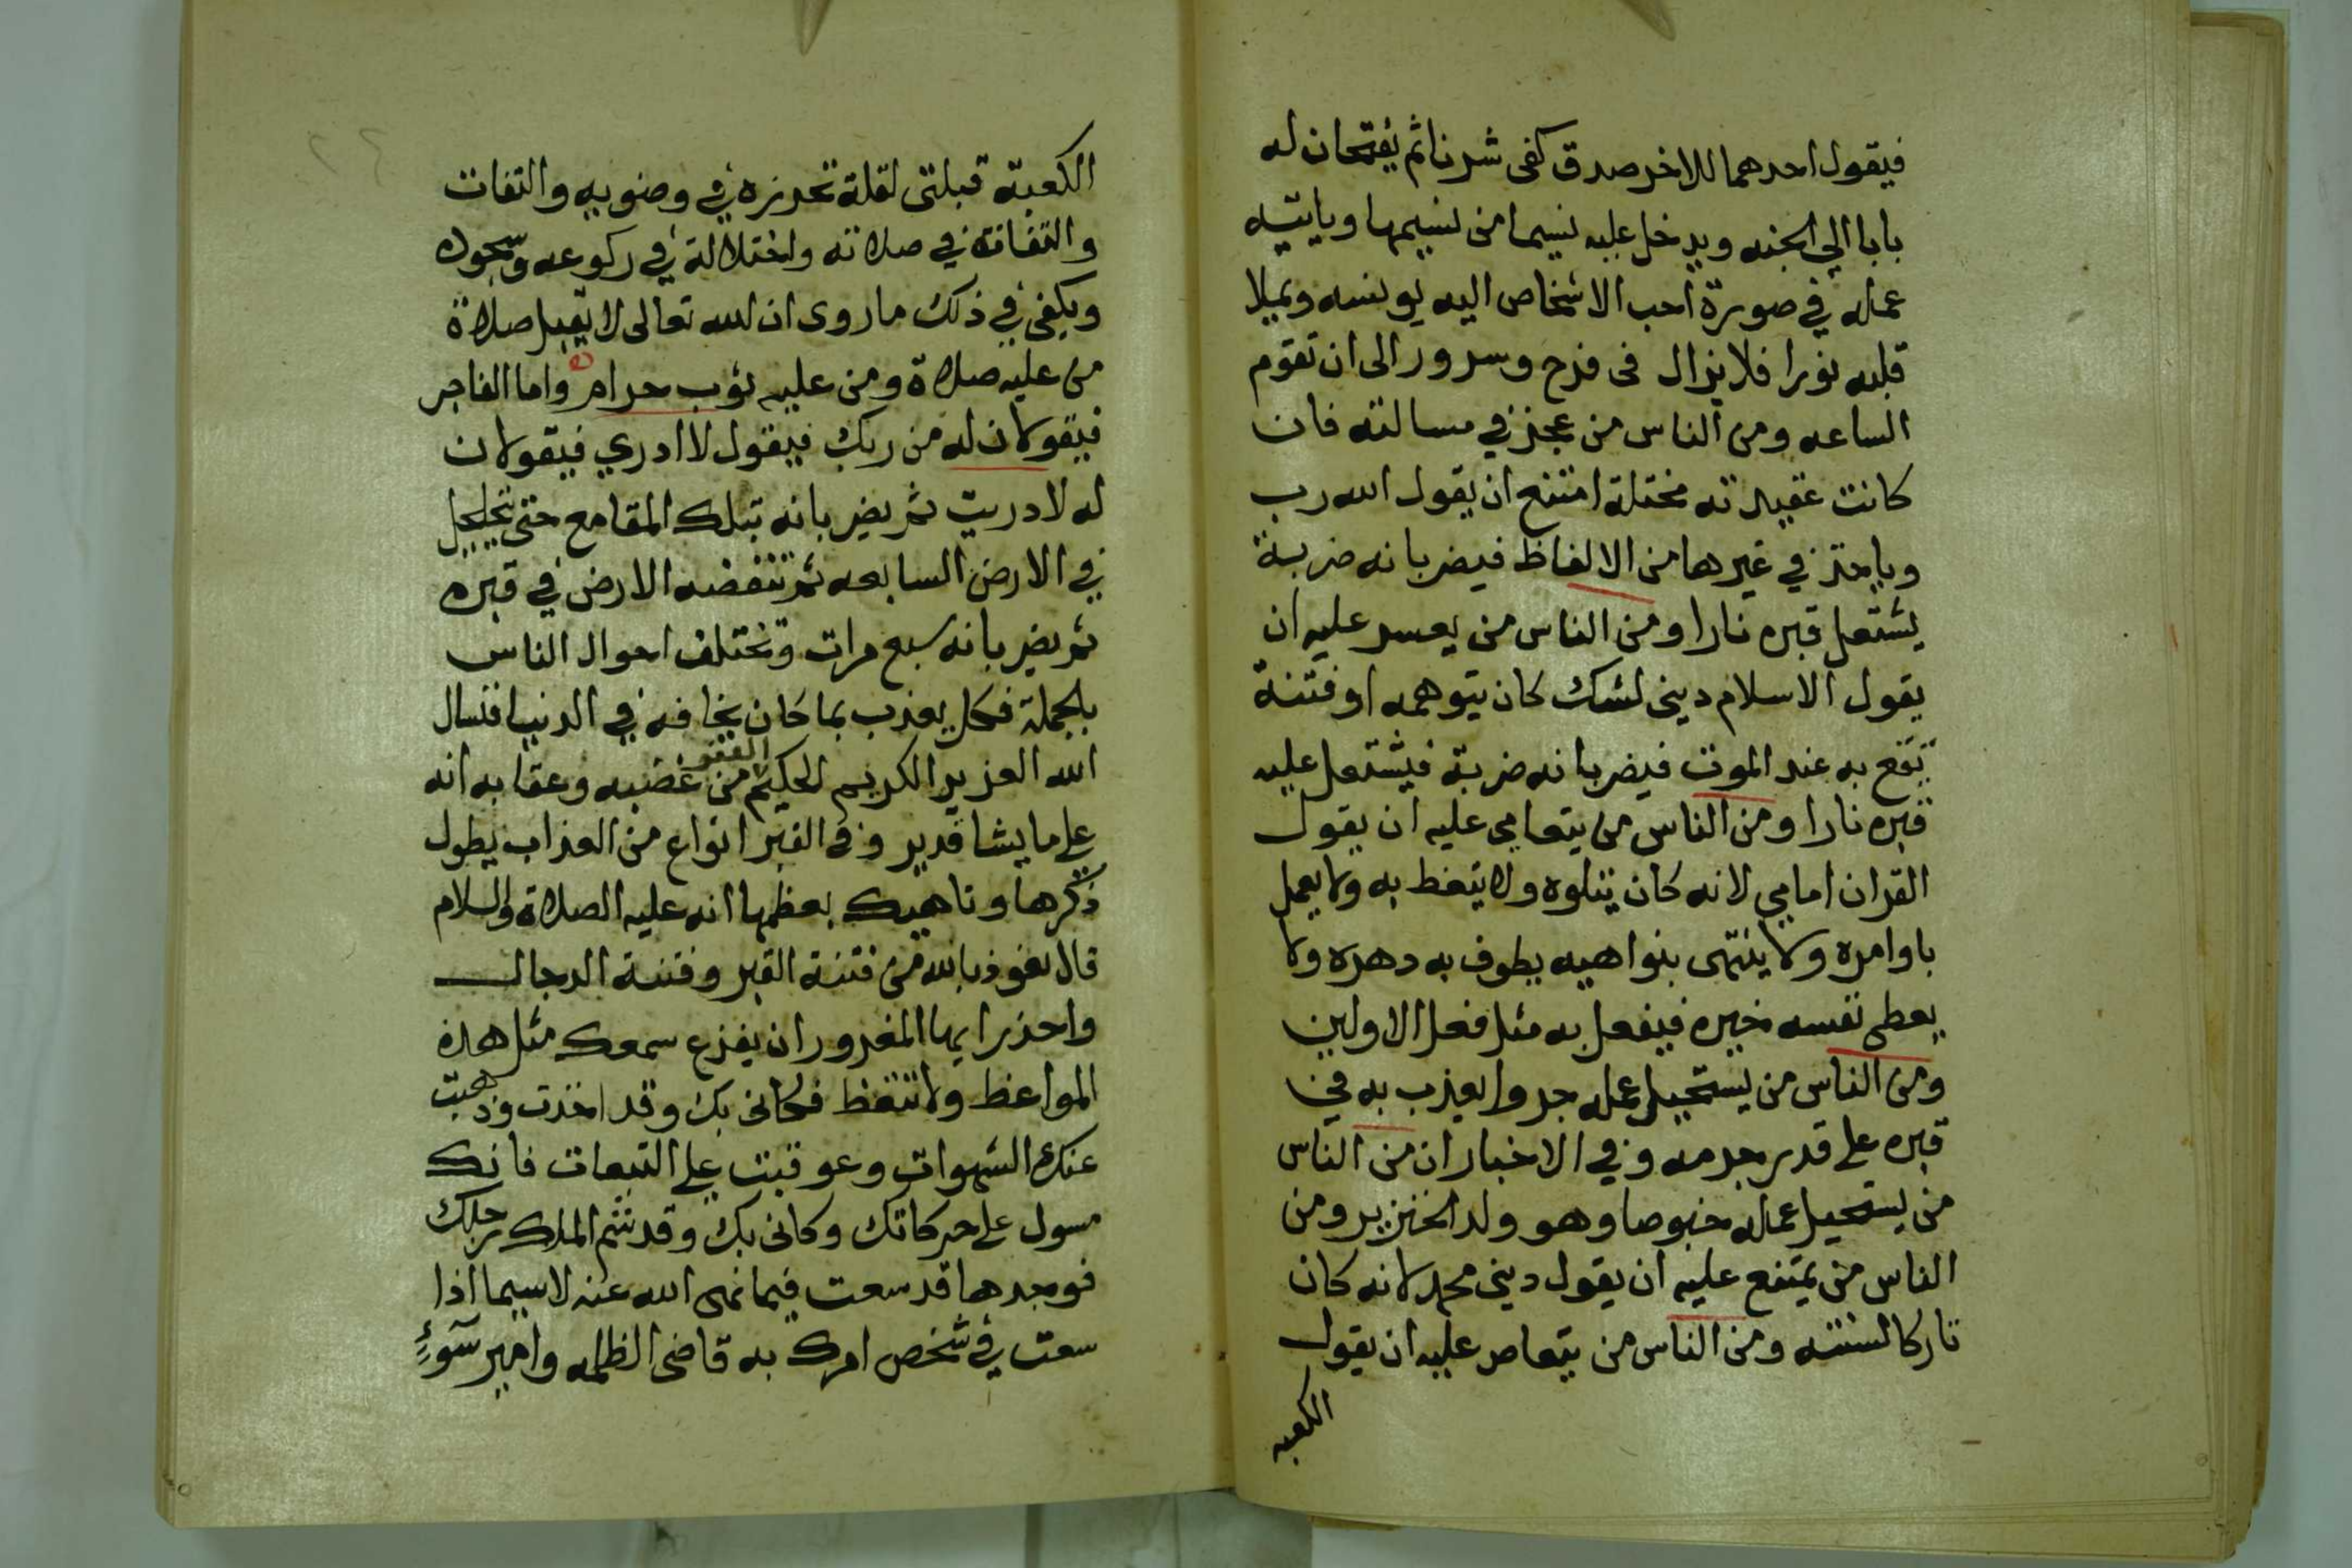 فيقول احدهما للاخر صدق كفى شرنا ثم يفتحان له
بابا الي الجنه ويدخل عليه نسيما من نسيمها وياتيه
عمله في صورة احب الاشخاص اليه يونسه ويملا
قلبه نورا فلا يزال فى فرح وسرور الى ان تقوم
الساعه ومن الناس من عجز في مسالته فان
كانت عقيدته مختلة امتنع ان يقول الله رب
وياخذ في غيرها من الالفاظ فيضربانه ضربة
يشتعل قبره نارا ومن الناس من يعسر عليه ان
يقول الاسلام دينى لشك كان يتوهمه او فتنة
تقع به عند الموت فيضربانه ضربة فيشتعل عليه
قبره نارا ومن الناس من يتعامي عليه ان يقول
القران امامي لانه كان يتلوه ولا يتعظ به ولا يعمل
باوامره ولا ينتهى بنواهيه يطوف به دهره ولا
يعطى نفسه خيره فيفعل به مثل فعل الاولين
ومن الناس من يستحيل عمله جروا يعذب به في
قبره على قدر جرمه وفي الاخبار ان من الناس
من يستحيل عمله خنوصا وهو ولد الخنزير ومن
الناس من يمتنع عليه ان يقول دينى محمد لانه كان
تاركا لسنته ومن الناس من يتعاصر عليه ان يقول
الكعبه
الكعبة قبلتى لقلة تحريزه في وضوييه والتفات
والتفاتة في صلاته واختلالة في ركوعه وسجوده
ويكفى في ذلك ما روى ان الله تعالى لا يقبل صلاة
من عليه صلاة ومن عليه ثوب حرام واما الفاجر
فيقولان له من ربك فيقول لا ادري فيقولان
له لا دريت ثم يضربانه بتلك المقامع حتى يتجلجل
في الارض السابعه ثم تنفضه الارض في قبره
ثم يضربانه سبع مرات وتختلف احوال الناس
بلجملة فكل يعذب بما كان يخافه في الدنيا فنسال
الله العزيز الكريم الحكيم العفو من غضبه وعقابه انه
على ما يشا قدير وفى القبر انواع من العذاب يطول
ذكرها وناهيك بعظمها انه عليه الصلاة والسلام
قال نعوذ بالله من فتنة القبر وفتنة الدجال
واحذر ايها المغرور ان يفزع سمعك مثل هذه
المواعظ ولا تتعظ فكانى بك وقد اخذت وذهبت
عنك الشهوات وعوقبت على التبعات فانك
مسول على حركاتك وكانى بك وقد شم الملك رجلك
فوجدها قد سعت فيما نهى الله عنه لاسيما اذا
سعت في شخص امرك به قاضى الظلمه وامير سوء